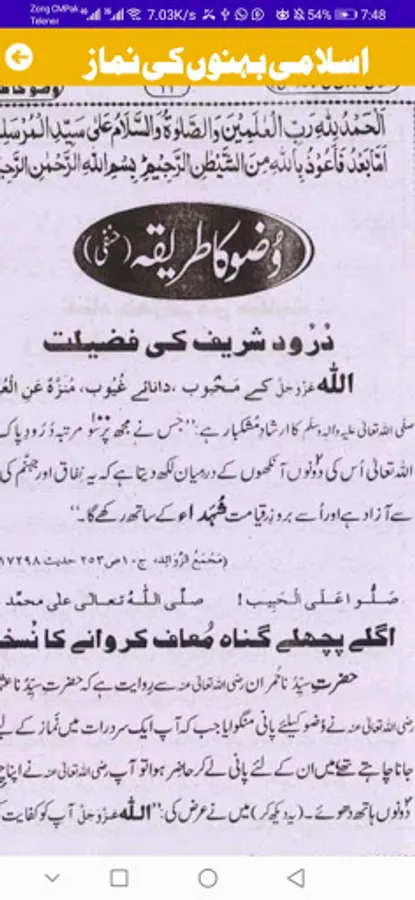 Zong CMPak
Telenor
7.03K/s
54%
7:48
اسلامی بہنوں کی نماز
۱۱
اَلْحَمْدُ لِلّٰہِ رَبِّ الْعٰلَمِیْنَ وَالصَّلٰوۃُ وَالسَّلَامُ عَلٰی سَیِّدِ الْمُرْسَلِ
اَمَّابَعْدُ فَاَعُوْذُ بِاللّٰہِ مِنَ الشَّیْطٰنِ الرَّجِیْمِ بِسْمِ اللّٰہِ الرَّحْمٰنِ الرَّحِیْ
وُضو کا طریقہ (حنفی)
دُرُود شریف کی فضیلت
اللّٰہ عَزَّوَجَلَّ کے مَحْبوب ،دانائے غُیُوب، مُنَزَّہٌ عَنِ الْعُ
صلی اللہ تعالیٰ علیہ والہٖ وسلم کا ارشادِ مُشکبار ہے: ”جس نے مجھ پر سو مرتبہ دُرُودِ پاک
اللہ تعالیٰ اُس کی دونوں آنکھوں کے درمیان لکھ دیتا ہے کہ یہ نِفاق اور جہنَّم کی
سے آزاد ہے اور اُسے بروزِ قِیامت شُہَداء کے ساتھ رکھے گا۔“
(مَجْمَعُ الزَّوَائِد، ج۱۰ ص۲۵۳ حدیث ۱۷۲۹۸
صَلُّوا عَلَی الْحَبِیب! صلَّی اللّٰہُ تعالٰی علٰی محمَّد
اگلے پچھلے گناہ مُعاف کروانے کا نُسخ
حضرتِ سیِّدُنا حُمران رضی اللہ تعالیٰ عنہ سے رِوایت ہے کہ حضرتِ سیِّدُنا عثم
رضی اللہ تعالیٰ عنہ نے وُضو کیلئے پانی منگوایا جب کہ آپ ایک سرد رات میں نَماز کے لی
جانا چاہتے تھے میں ان کے لئے پانی لے کر حاضِر ہوا تو آپ رضی اللہ تعالیٰ عنہ نے اپنا چ
دونوں ہاتھ دھوئے۔ (یہ دیکھ کر) میں نے عرض کی: ”اللّٰہ عَزَّوَجَلَّ آپ کو کفایت ک